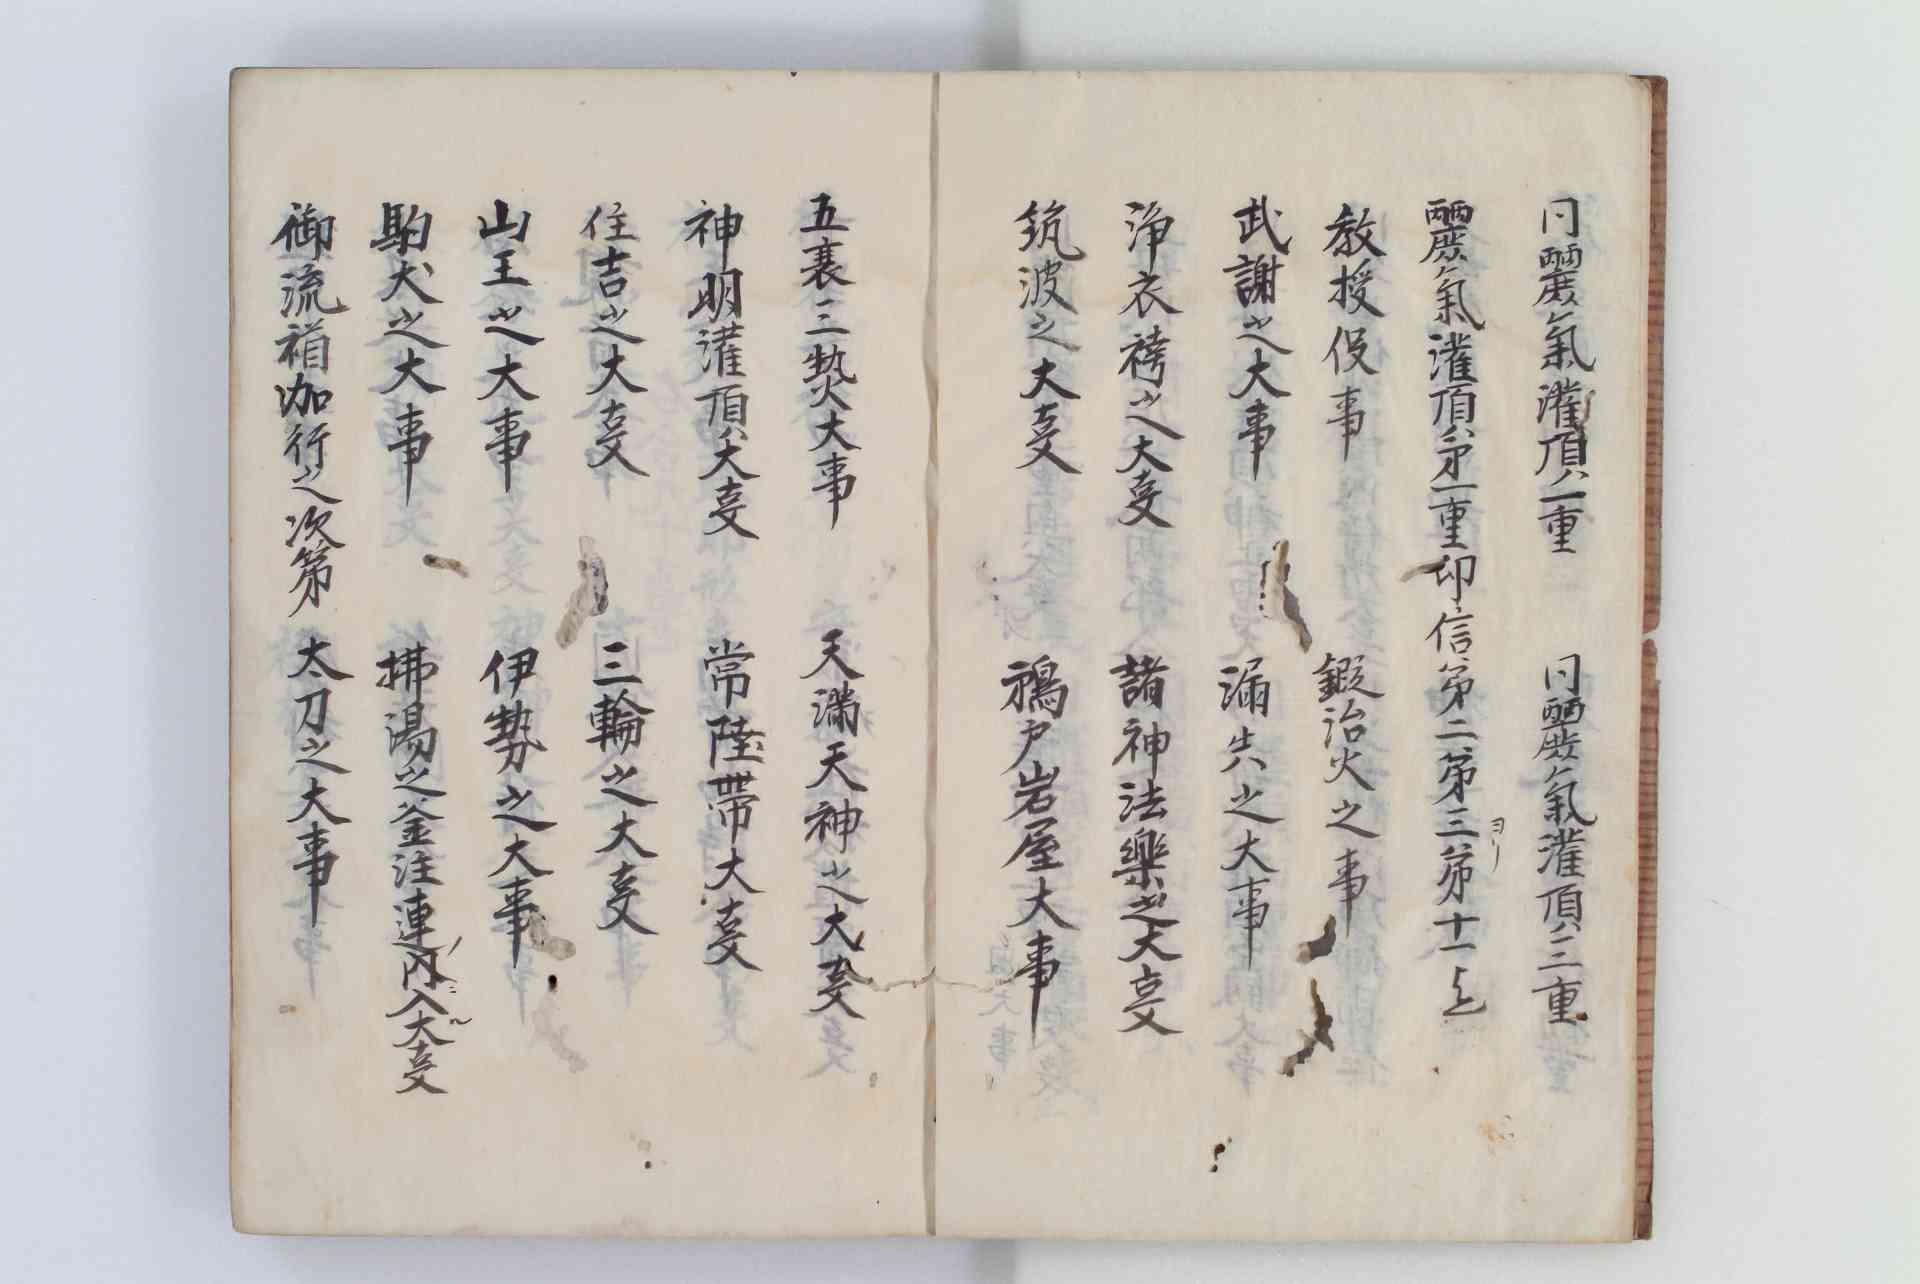 同麗氣灌頂一重　同麗氣灌頂二重
麗氣灌頂第一重印信第二第三ヨリ第十一迄
教授役事　鍛冶火之事
武謝之大事　漏尖之大事
浄衣袴之大事　諸神法樂之大事
筑波之大事　鵜戸岩屋大事
五衰三熱大事　天満天神之大事
神明灌頂大事　常陸帯大事
住吉之大事　三輪之大事
山王之大事　伊勢之大事
駒犬之大事　拂湯之釜注連内ノ入ル大事
御流神加行之次第　太刀之大事